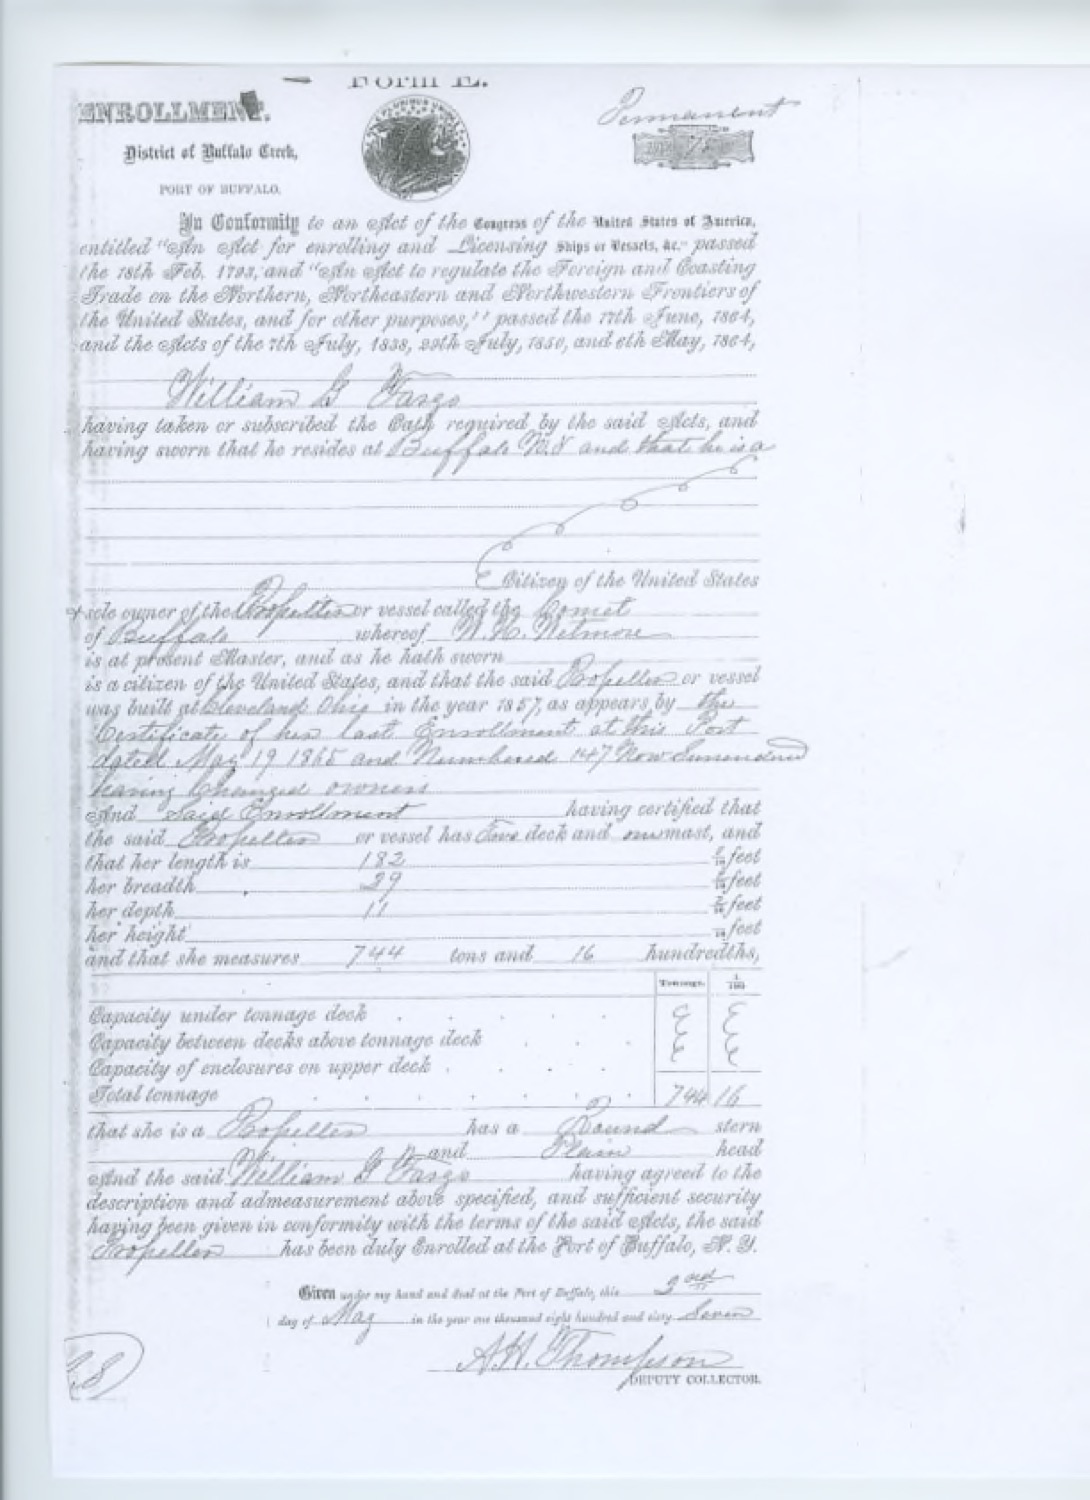 Form E.
ENROLLMENT.
Permanent
District of Buffalo Creek,
PORT OF BUFFALO.
In Conformity to an Act of the Congress of the United States of America,
entitled "An Act for enrolling and Licensing Ships or Vessels, &c." passed
the 18th Feb. 1793, and "An Act to regulate the Foreign and Coasting
Trade on the Northern, Northeastern and Northwestern Frontiers of
the United States, and for other purposes," passed the 17th June, 1864,
and the Acts of the 7th July, 1838, 29th July, 1850, and 6th May, 1864,
William G Fargo
having taken or subscribed the Oath required by the said Acts, and
having sworn that he resides at Buffalo N.Y and that he is a
Citizen of the United States
& sole owner of the Propeller or vessel called the Comet
of Buffalo whereof Wetmore
is at present Master, and as he hath sworn
is a citizen of the United States, and that the said Propeller or vessel
was built at Cleveland Ohio in the year 1857, as appears by the
Certificate of her last Enrollment at this Port
dated May 19 1865 and Numbered 147 Now Surrendered
having Changed owners
And Said Enrollment having certified that
the said Propeller or vessel has deck and one mast, and
that her length is 182 feet
her breadth 29 feet
her depth 11 feet
her height feet
and that she measures 744 tons and 16 hundredths,
Tonnage. 1/100
Capacity under tonnage deck
Capacity between decks above tonnage deck
Capacity of enclosures on upper deck
Total tonnage 744 16
that she is a Propeller has a Round stern
and Plain head
And the said William G Fargo having agreed to the
description and admeasurement above specified, and sufficient security
having been given in conformity with the terms of the said Acts, the said
Propeller has been duly Enrolled at the Port of Buffalo, N. Y.
Given under my hand and Seal at the Port of Buffalo, this
day of May in the year one thousand eight hundred and sixty Seven
A.H. Thompson
DEPUTY COLLECTOR.